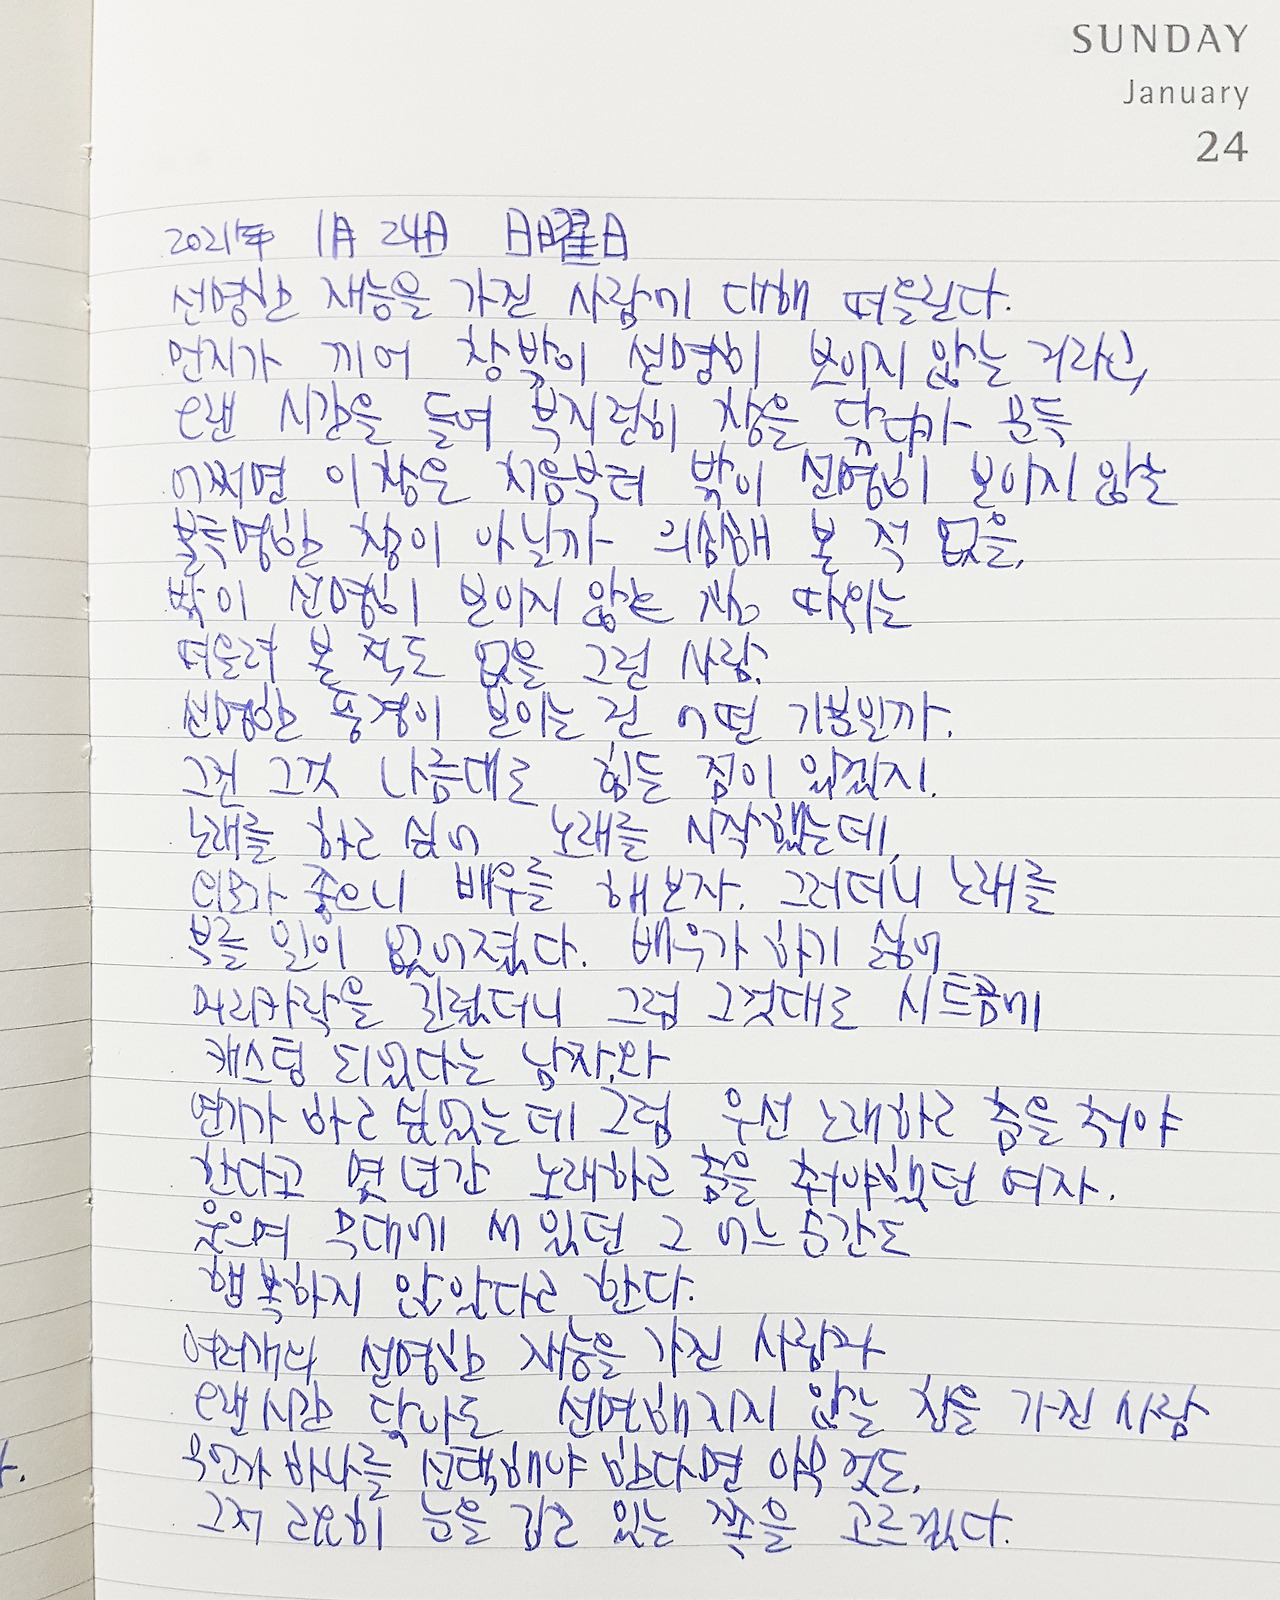 SUNDAY
January
24
2021年 1月 24日 日曜日
선명한 재능을 가진 사람에 대해 떠올린다.
먼지가 끼어 창 밖이 선명히 보이지 않는 거라고,
오랜 시간을 들여 부지런히 창을 닦다가 문득
어쩌면 이 창은 처음부터 밖이 선명히 보이지 않는
불투명한 창이 아닐까 의심해 본 적 없을,
밖이 선명히 보이지 않는 창 따위는
떠올려 본 적도 없을 그런 사람.
선명한 풍경이 보이는 건 어떤 기분일까.
그건 그것 나름대로 힘든 점이 있겠지.
노래를 하고 싶어 노래를 시작했는데,
외모가 좋으니 배우를 해보자. 그러더니 노래를
부를 일이 없어졌다. 배우가 하기 싫어
머리카락을 길렀더니 그럼 그것대로 시트콤에
캐스팅 되었다는 남자와
연기가 하고 싶었는데 그럼 우선 노래하고 춤을 춰야
한다고 몇 년간 노래하고 춤을 춰야했던 여자.
웃으며 무대에 서 있던 그 어느 순간도
행복하지 않았다고 한다.
여러개의 선명한 재능을 가진 사람과
오랜시간 닦아도 선명해지지 않는 창을 가진 사람
누군가 하나를 선택해야 한다면
그저 고요히 눈을 감고 있는 쪽을 고르겠다.